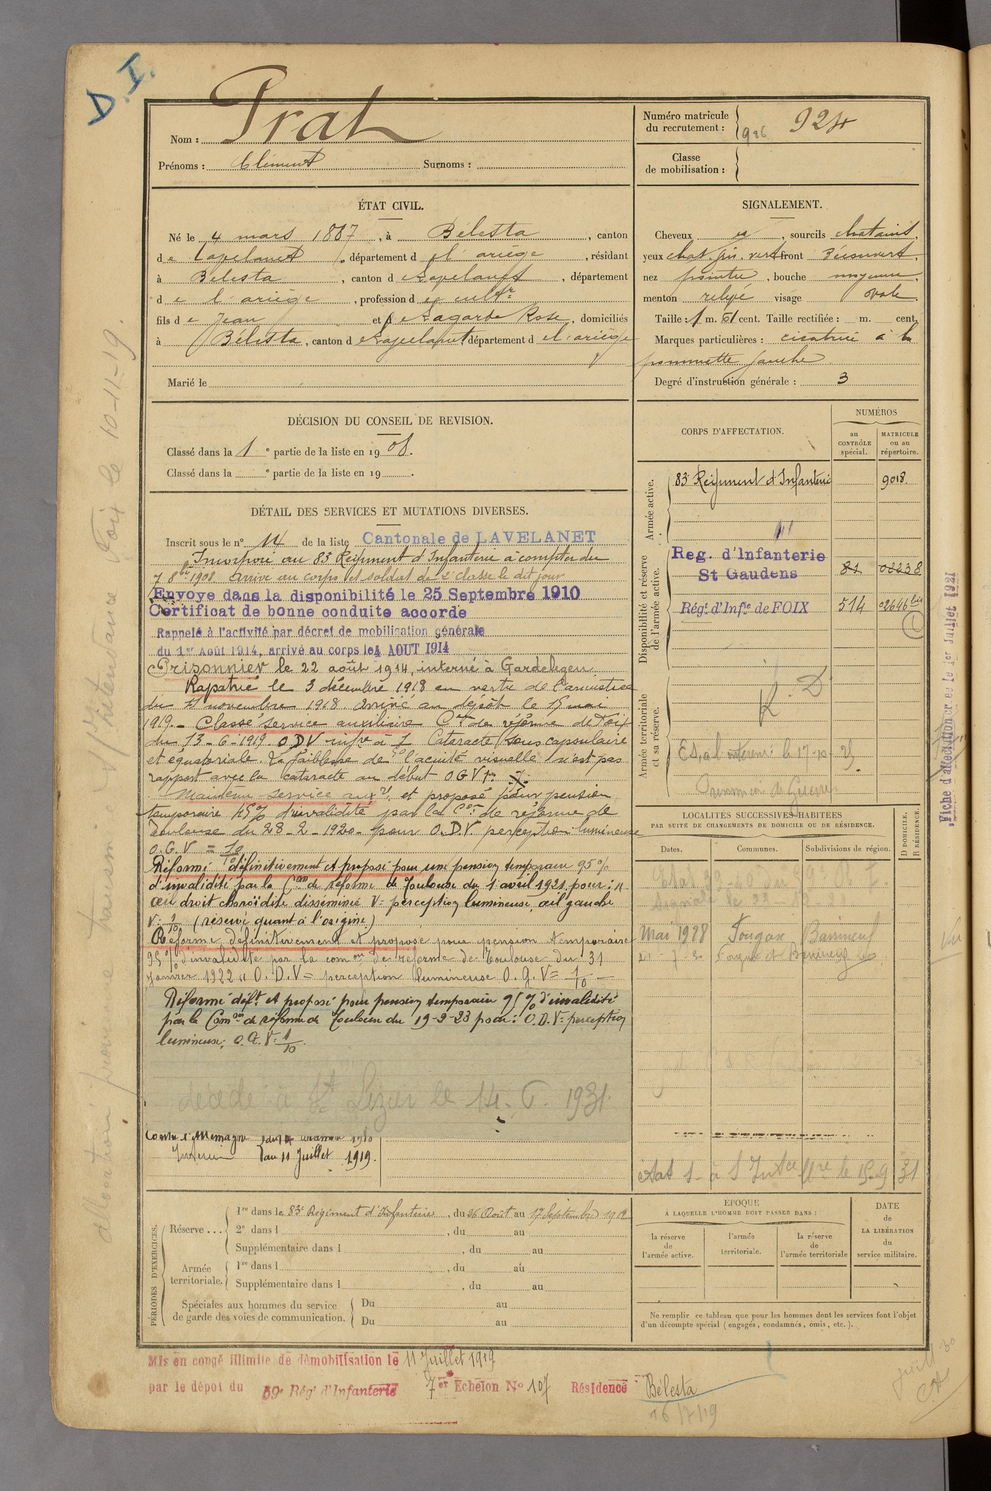 D. I.
Nom : Prat
Prénoms : Clément Surnoms :
Numéro matricule du recrutement : 926 924
Classe de mobilisation :
ÉTAT CIVIL.
Né le 4 mars 1887, à Bélesta, canton
de Lapelanet, département d l'ariège, résidant
à Bélesta, canton de Lapelanet, département
de l'ariège, profession d ex cultr
fils de Jean et de Lagarde Rose, domiciliés
à Bélesta, canton de Lapelanet département de l'ariège
Marié le
SIGNALEMENT.
Cheveux , sourcils chatains,
yeux chat. gris. vert front Découvert,
nez pointu, bouche moyenne,
menton relevé visage ovale
Taille 1 m. 61 cent. Taille rectifiée : m. cent.
Marques particulières : cicatrice à la
pommette gauche
Degré d'instruction générale : 3
DÉCISION DU CONSEIL DE REVISION.
Classé dans la 1e partie de la liste en 1908.
Classé dans la e partie de la liste en 19 .
DÉTAIL DES SERVICES ET MUTATIONS DIVERSES.
Inscrit sous le n° 14 de la liste Cantonale de LAVELANET
Incorporé au 83e Régiment d'Infanterie à compter du
7 8bre 1908. Arrivé au corps et soldat de 2e classe le dit jour
Envoyé dans la disponibilité le 25 Septembre 1910
Certificat de bonne conduite accordé
Rappelé à l'activité par décret de mobilisation générale
du 1er Août 1914, arrivé au corps le 4 AOUT 1914
Prisonnier le 22 août 1914, interné à Gardelegen
Rapatrié le 3 décembre 1918 en vertu de l'armistice
du 11 novembre 1918. Arrivé au dépôt le 17 mai
1919. - Classé service auxiliaire Con de réforme de Foix
du 13-6-1919. O D V infre à 1 Cataracte sous capsulaire
et équatoriale. La faiblesse de l'acuité visuelle n'est pas
rapport avec la cataracte au début O G V
Maintenu service auxre et proposé pour pension
temporaire 45% d'invalidité par la Con de réforme de
Toulouse du 28-2-1920 pour O.D.V perception lumineuse
O.G.V = 1/10
Réformé définitivement et proposé pour une pension temporaire 95%
d'invalidité par la Con de réforme de Toulouse du 1 avril 1921 pour :
œil droit choroïdite disséminée V = perception lumineuse, œil gauche
V = 1/10 (réservé quant à l'origine)
Réformé définitivement et proposé pour pension temporaire
95% d'invalidité par la comon de réforme de Toulouse du 31
janvier 1922 O.D.V = perception lumineuse O.G.V = 1/10
Réformé déft et proposé pour pension temporaire 95% d'invalidité
par la Comon de réforme de Toulouse du 19-2-23 pour : O.D.V = perception
lumineuse, O.G.V. 1/10
décédé à St Lizier le 14. 6. 1931
Contre l'Allemagne
Intérieur au 11 Juillet 1919.
CORPS D'AFFECTATION.
NUMÉROS
au CONTRÔLE spécial.
MATRICULE ou au répertoire.
Armée active.
83e Régiment d'Infanterie 9018
Disponibilité et réserve de l'armée active.
Reg. d'Infanterie
St Gaudens 81 02238
Régt d'Infie de FOIX 514 02646 bis
Armée territoriale et sa réserve.
K. D.
Prisonnier de Guerre
LOCALITÉS SUCCESSIVES HABITÉES
PAR SUITE DE CHANGEMENTS DE DOMICILE OU DE RÉSIDENCE.
Dates. Communes. Subdivisions de région. D DOMICILE. R RÉSIDENCE.
Mai 1928 Fougax Barrineuf
Fougax et Barrineuf
PÉRIODES D'EXERCICES.
Réserve....
1re dans le 83e Régiment d'Infanterie, du 26 Août au 17 Septembre 1912
2e dans l , du au
Supplémentaire dans l , du au
Armée territoriale.
1re dans l , du au
Supplémentaire dans l , du au
Spéciales aux hommes du service de garde des voies de communication.
Du au
Du au
ÉPOQUE
À LAQUELLE L'HOMME DOIT PASSER DANS :
la réserve de l'armée active.
l'armée territoriale.
la réserve de l'armée territoriale
DATE DE LA LIBÉRATION du service militaire.
Ne remplir ce tableau que pour les hommes dont les services font l'objet
d'un décompte spécial (engagés, condamnés, omis, etc.).
Mis en congé illimité de démobilisation le 11 Juillet 1919
par le dépôt du 59e Régt d'Infanterie 7e Echelon N° 107 Résidence Bélesta
16/7/19